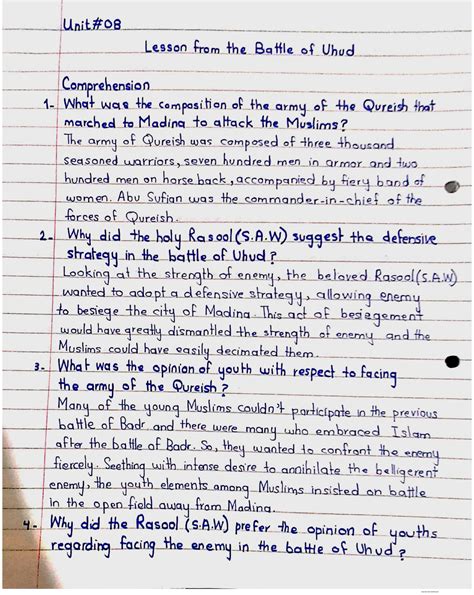 Unit#08
Lesson from the Battle of Uhud
Comprehension
1- What was the composition of the army of the Qureish that
marched to Madina to attack the Muslims?
The army of Qureish was composed of three thousand
seasoned warriors, seven hundred men in armor and two
hundred men on horse back, accompanied by fiery band of
women. Abu Sufian was the commander-in-chief of the
forces of Qureish.
2- Why did the holy Rasool (S.A.W) suggest the defensive
strategy in the battle of Uhud?
Looking at the strength of enemy, the beloved Rasool (S.A.W)
wanted to adopt a defensive strategy, allowing enemy
to besiege the city of Madina. This act of besiegement
would have greatly dismantled the strength of enemy and the
Muslims could have easily decimated them.
3- What was the opinion of youth with respect to facing
the army of the Qureish?
Many of the young Muslims couldn't participate in the previous
battle of Badr and there were many who embraced Islam
after the battle of Badr. So, they wanted to confront the enemy
fiercely. Seething with intense desire to annihilate the belligerent
enemy, the youth elements among Muslims insisted on battle
in the open field away from Madina.
4- Why did the Rasool (S.A.W) prefer the opinion of youths
regarding facing the enemy in the battle of Uhud?